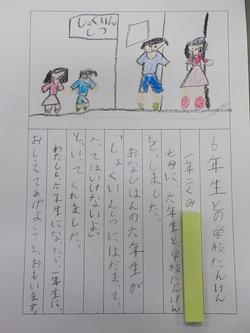 しょくいん
しつ
６年生との学校たんけん
一年二くみ
七月に、六年生と学校たんけん
を、しました。
おなじはんの六年生が、
「しょくいんしつにはだまって、
入ってはいけないよ。」
と、いってくれました。
わたしも六年生になったら一年生に、
おしえてあげようと、おもいます。